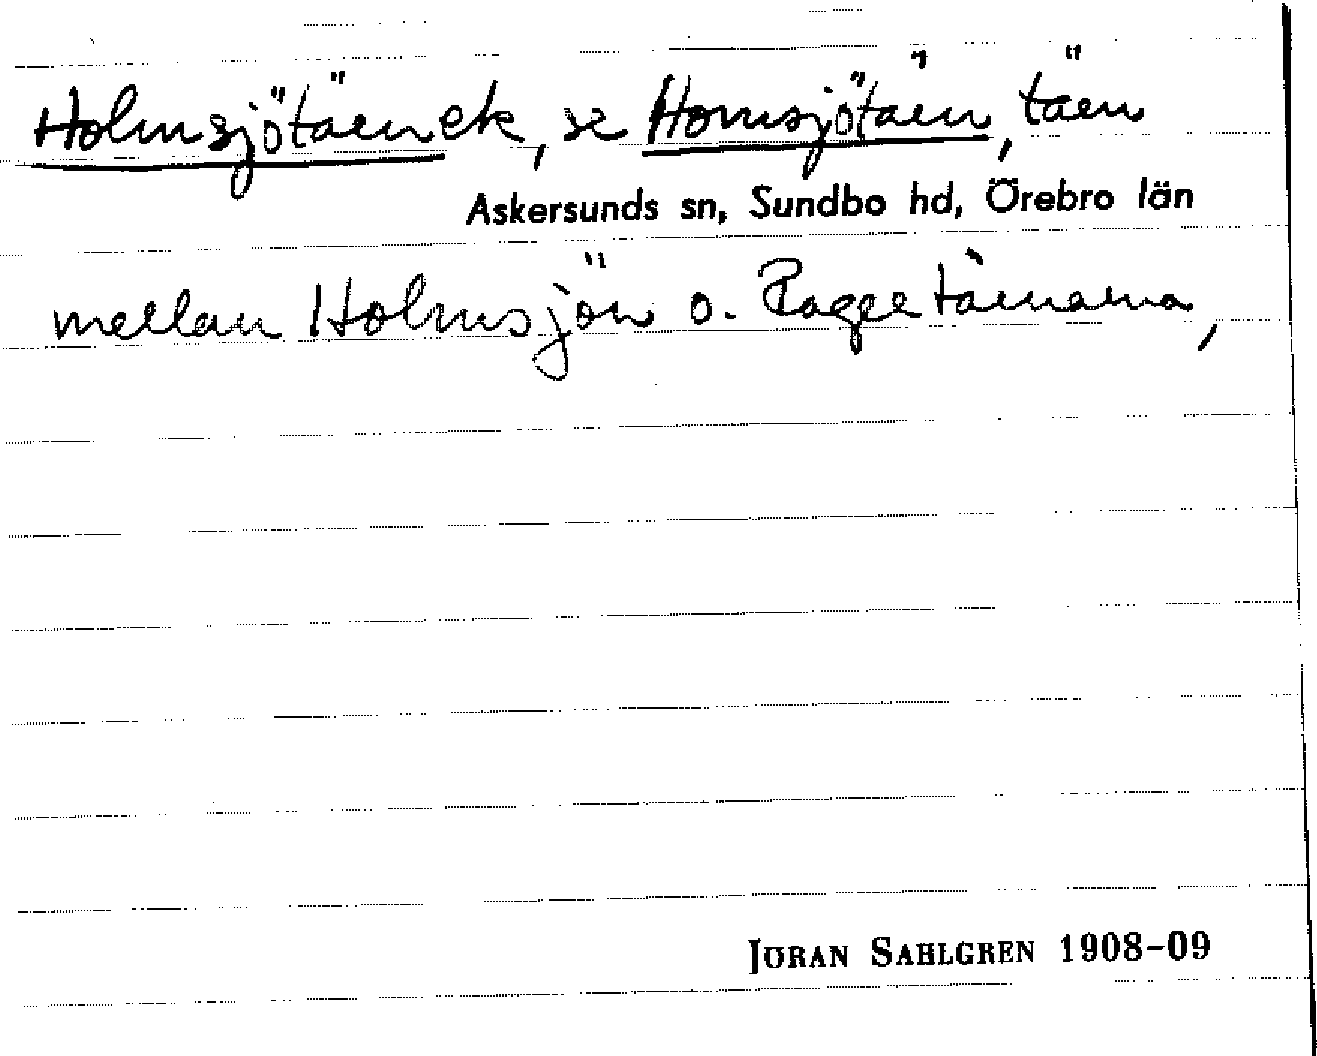 Holmsjötäen ek, se Homsjötäen, täen
Askersunds sn, Sundbo hd, Örebro län
mellan Holmsjön o. täenarna,
JÖRAN SAHLGREN 1908-09